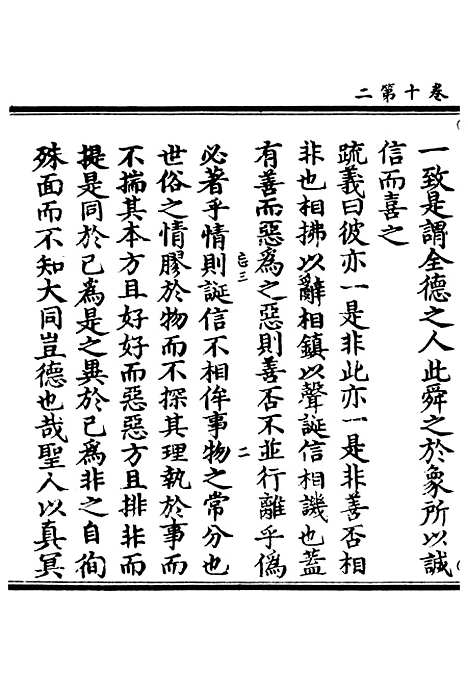 卷十第二
一致是謂全德之人此舜之於象所以誠
信而喜之
疏義曰彼亦一是非此亦一是非善否相
非也相拂以辭相鎮以聲誕信相譏也蓋
有善而惡為之惡則善否不並行離乎僞
必著乎情則誕信不相侔事物之常分也
忘三
二
世俗之情膠於物而不探其理執於事而
不揣其本方且好好而惡惡方且排非而
提是同於已為是之異於已爲非之自徇
殊面而不知大同豈德也哉聖人以真冥